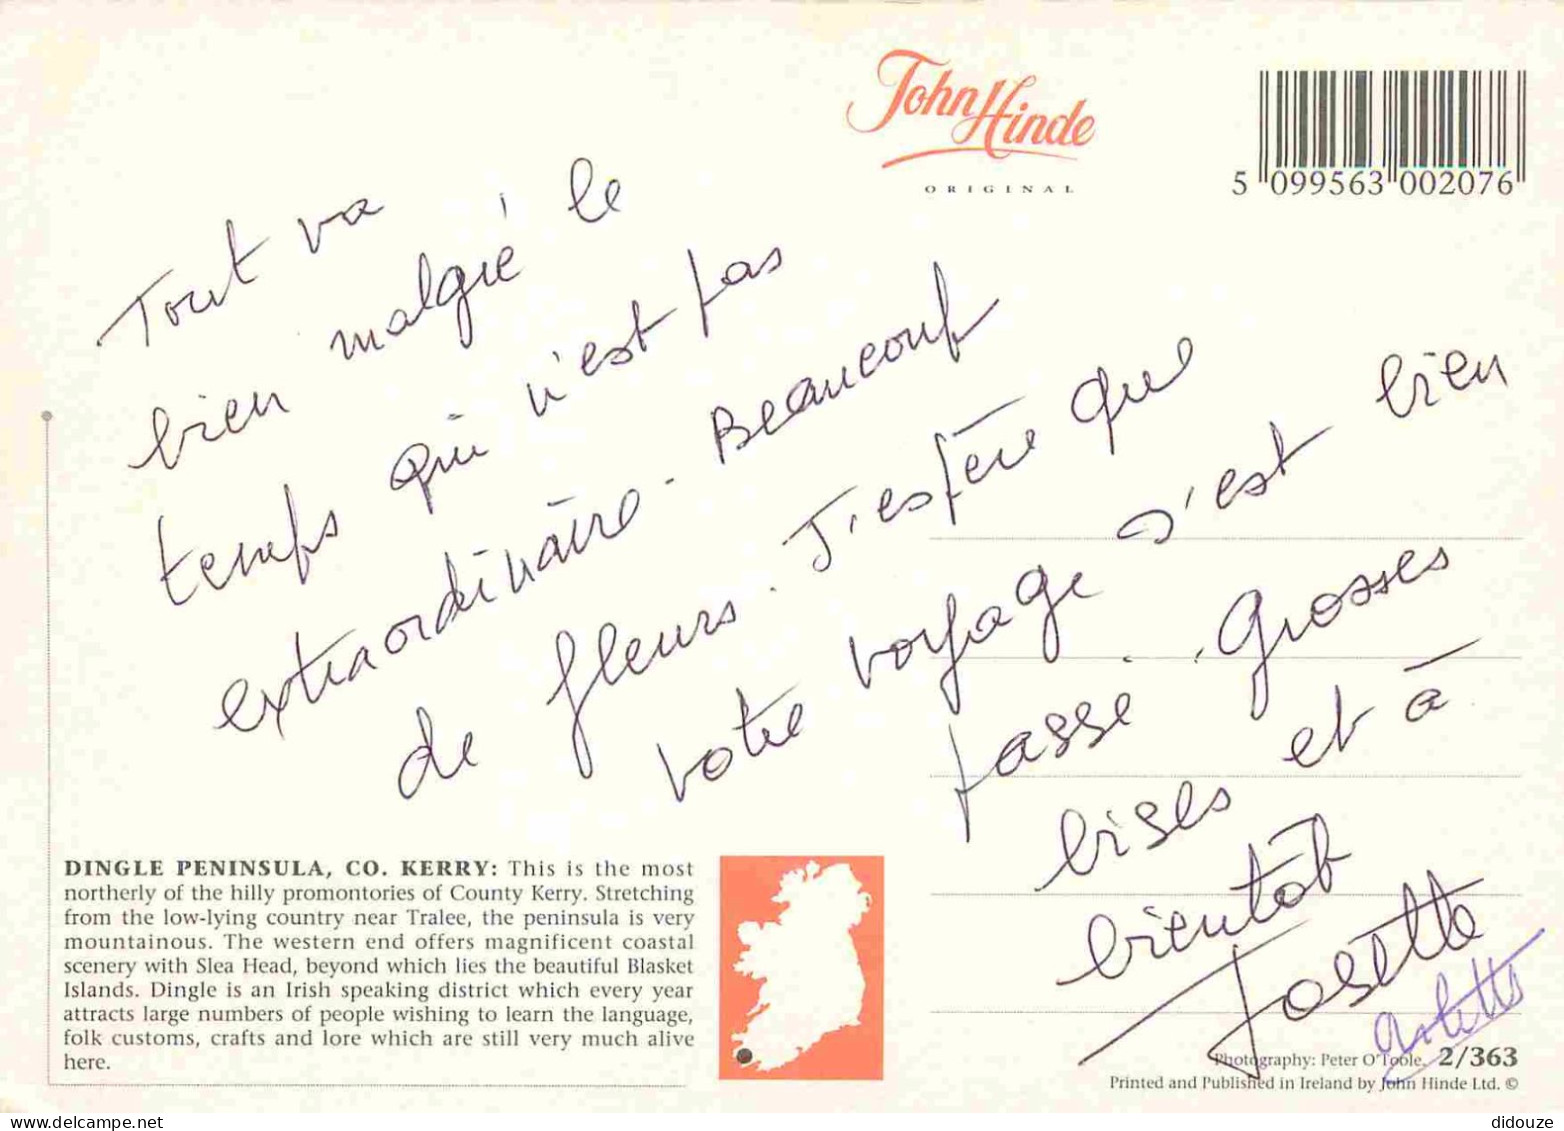 John Hinde
ORIGINAL
5 099563 002076
Tout va
bien malgré le
temps qui n'est pas
extraordinaire - Beaucoup
de fleurs. J'espère que
votre voyage s'est bien
passé. Grosses
bises et à
bientôt
Josette
DINGLE PENINSULA, CO. KERRY: This is the most
northerly of the hilly promontories of County Kerry. Stretching
from the low-lying country near Tralee, the peninsula is very
mountainous. The western end offers magnificent coastal
scenery with Slea Head, beyond which lies the beautiful Blasket
Islands. Dingle is an Irish speaking district which every year
attracts large numbers of people wishing to learn the language,
folk customs, crafts and lore which are still very much alive
here.
Photography: Peter O'Toole. 2/363
Printed and Published in Ireland by John Hinde Ltd. ©
didouze